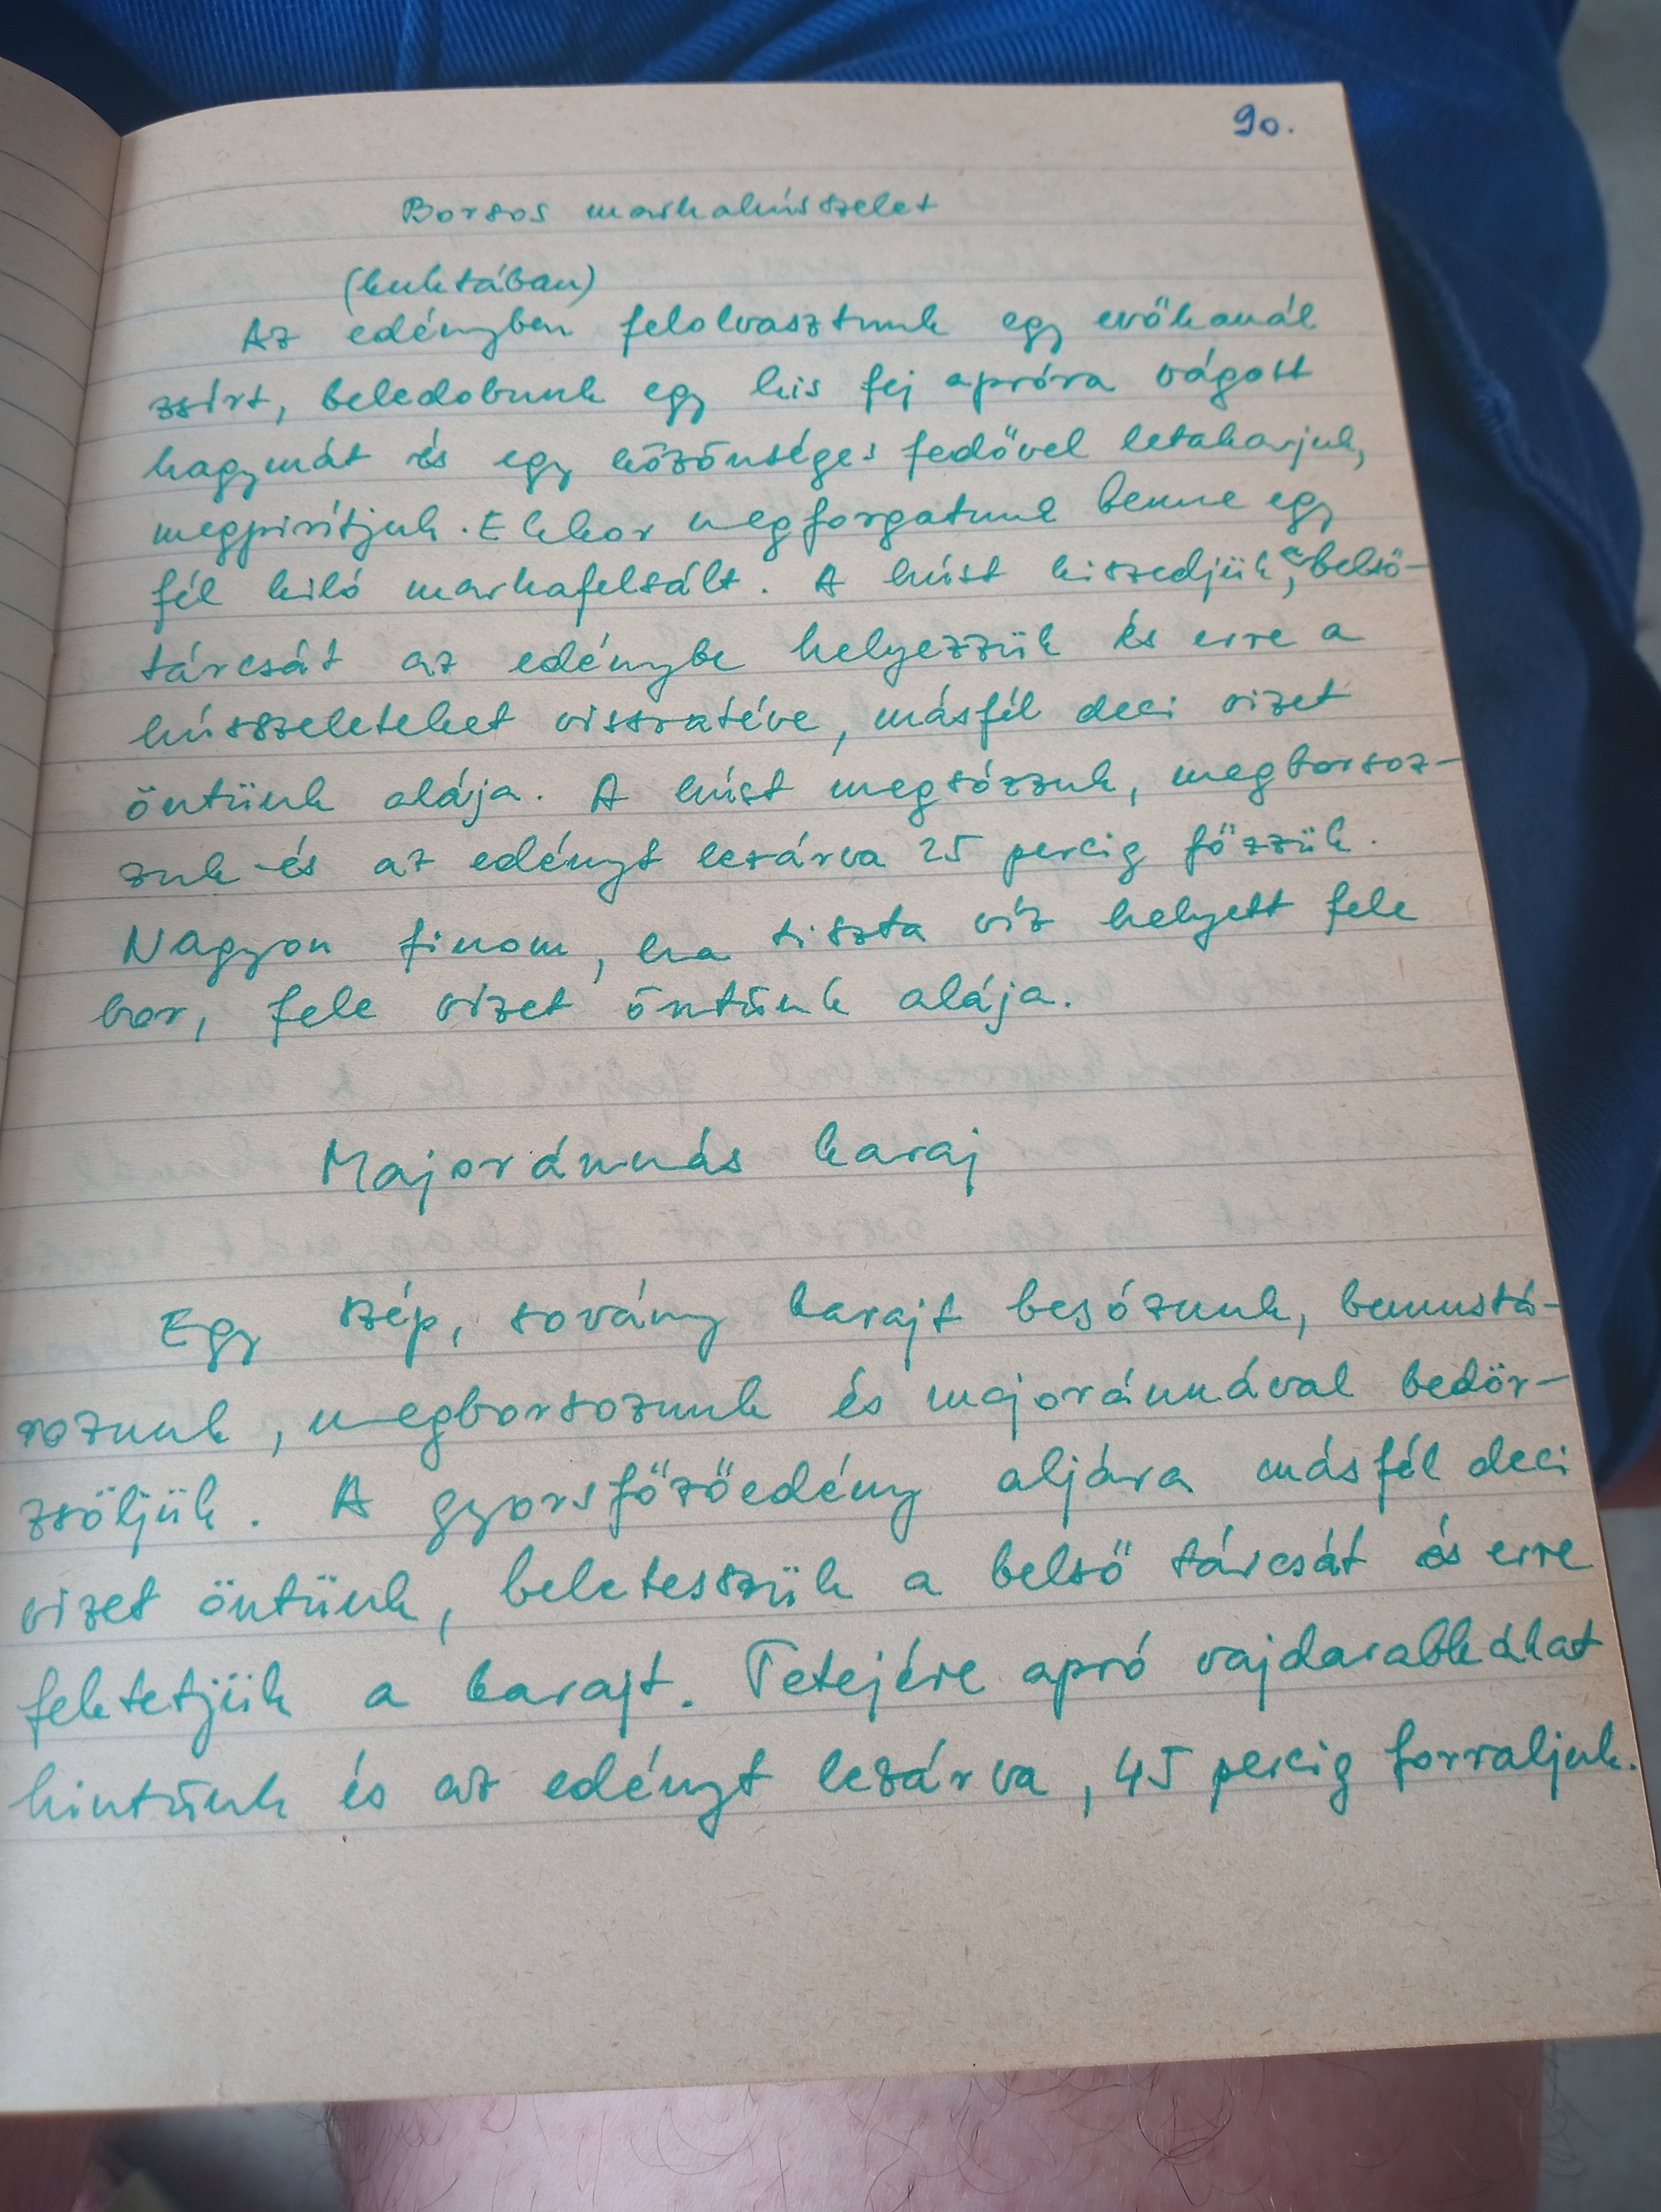 90.
Borsos marhahússzelet
(kuktában)
Az edényben felolvasztunk egy evőkanál
zsírt, beledobunk egy kis fej apróra vágott
hagymát és egy közönséges fedővel letakarjuk,
megpirítjuk. Ekkor megforgatunk benne egy
fél kiló marhafelsált. A húst kiszedjük, a belső-
tárcsát az edénybe helyezzük és erre a
hússzeleteket visszatéve, másfél deci vizet
öntünk alája. A húst megsózzuk, megborsoz-
zuk és az edényt lezárva 25 percig főzzük.
Nagyon finom, ha tiszta víz helyett fele
bor, fele vizet öntünk alája.
Majoránnás karaj
Egy szép, sovány karajt besózunk, bemustá-
rozunk, megborsozunk és majoránnával bedör-
zsöljük. A gyorsfőzőedény aljára másfél deci
vizet öntünk, beletesszük a belső tárcsát és erre
feltetjük a karajt. Tetejére apró vajdarabkákat
hintünk és az edényt lezárva, 45 percig forraljuk.